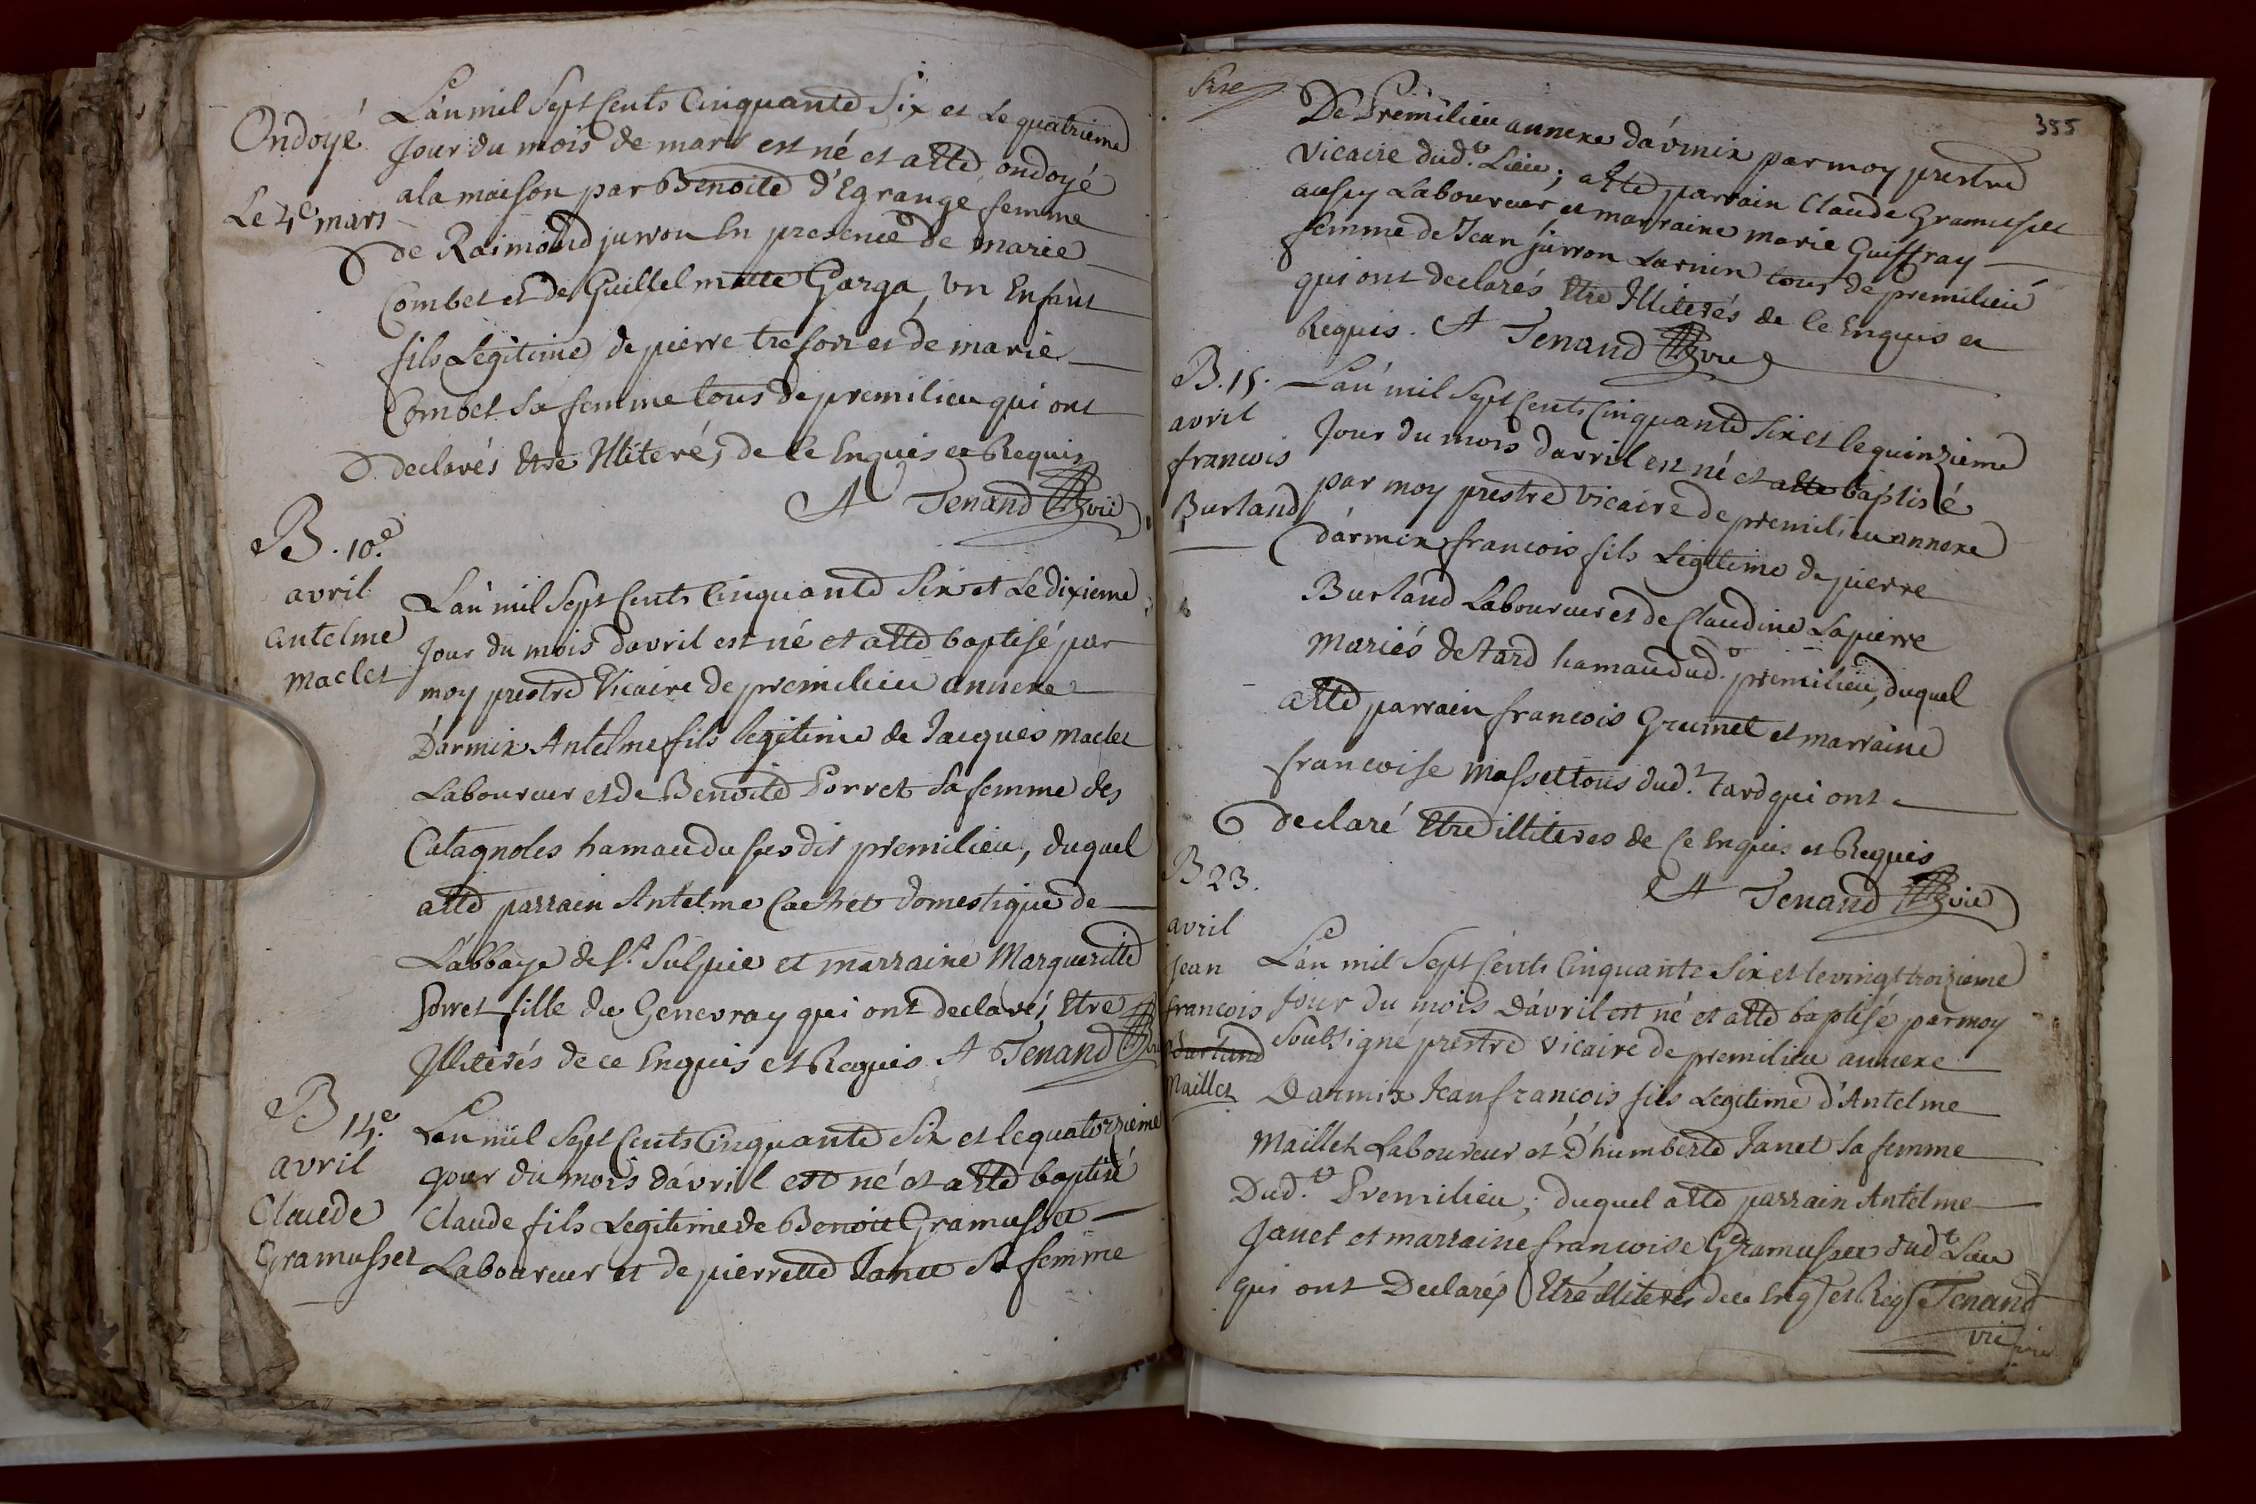 Ondoyé
Le 4e mars
L'an mil Sept Cents Cinquante Six et Le quatrieme
Jour du mois de mars est né et atté ondoyé
a la maison par Benoite d'Egrange femme
de Raimond jurron En presence de marie
Combet et de Guillelmatte Garga, vn Enfant
fils Legitime de pierre tresorr et de marie
Combet Sa femme tous de premilieu qui ont
declarés Etre Illiteré, de Ce Enquis et Requis
A Tenand vic
B. 10e
avril
antelme
maclet
L'an mil Sept Cents Cinquante Six et Le dixieme
Jour du mois d'avril est né et atté baptisé par
moy prestre Vicaire de premilieu annexe
D'armix Antelme fils legitime de Jacques maclet
Laboureur et de Benoite Porret Sa femme des
Catagnoles hamau du Susdit premilieu, duquel
atté parrain Antelme Cachet domestique de
L'abbaye de St. Sulpice et marraine Margueritte
Porret fille du Genevray qui ont declaré, Etre
Illiterés de ce Enquis et Requis A Tenand vic
B 14.e
avril
Claude
Gramusset
L'an mil Sept Cents Cinquante Six et le quatorzieme
jour du mois d'avril est né et atté baptisé
Claude fils Legitime de Benoit Gramusset
Laboureur et de pierrette Janet Sa femme
355
De Premilieu annexe d'armix par moy prestre
vicaire dud.t Lieu; atté parrain Claude Gramusset
aussy Laboureur et marraine marie Guiffray
femme de Jean jurron Larnin tous de premilieu
qui ont declarés Etre Illiterés de Ce Enquis et
Requis. A Tenand vic
B. 15.
avril
francois
Burland
L'an mil Sept Cents Cinquante Six et le quinzieme
Jour du mois d'avril est né et atté baptisé
par moy prestre vicaire de premilieu annexe
d'armix francois fils Legitime de pierre
Burland Laboureur et de Claudine Lapierre
Mariés de tard hamau dud.t premilieu, duquel
atté parrain francois Grumet et marraine
francoise Masset tous dud.t tard qui ont
declaré Etre illiteres de Ce Enquis et Requis
A Tenand vic
B 23.
avril
Jean
francois
Burland
Maillet
L'an mil Sept Cents Cinquante Six et le vingt troizieme
Jour du mois d'avril est né et atté baptisé par moy
Soubsigné prestre vicaire de premilieu annexe
D'armix Jean françois fils Legitime d'Antelme
Maillet Laboureur et d'humberte Janet Sa femme
Dud.t Premilieu; duquel atté parrain Antelme
Janet et marraine francoise Gramusset dud.t Lieu
qui ont Declarés Etre illiterés de ce Enq et Req Tenand
vic